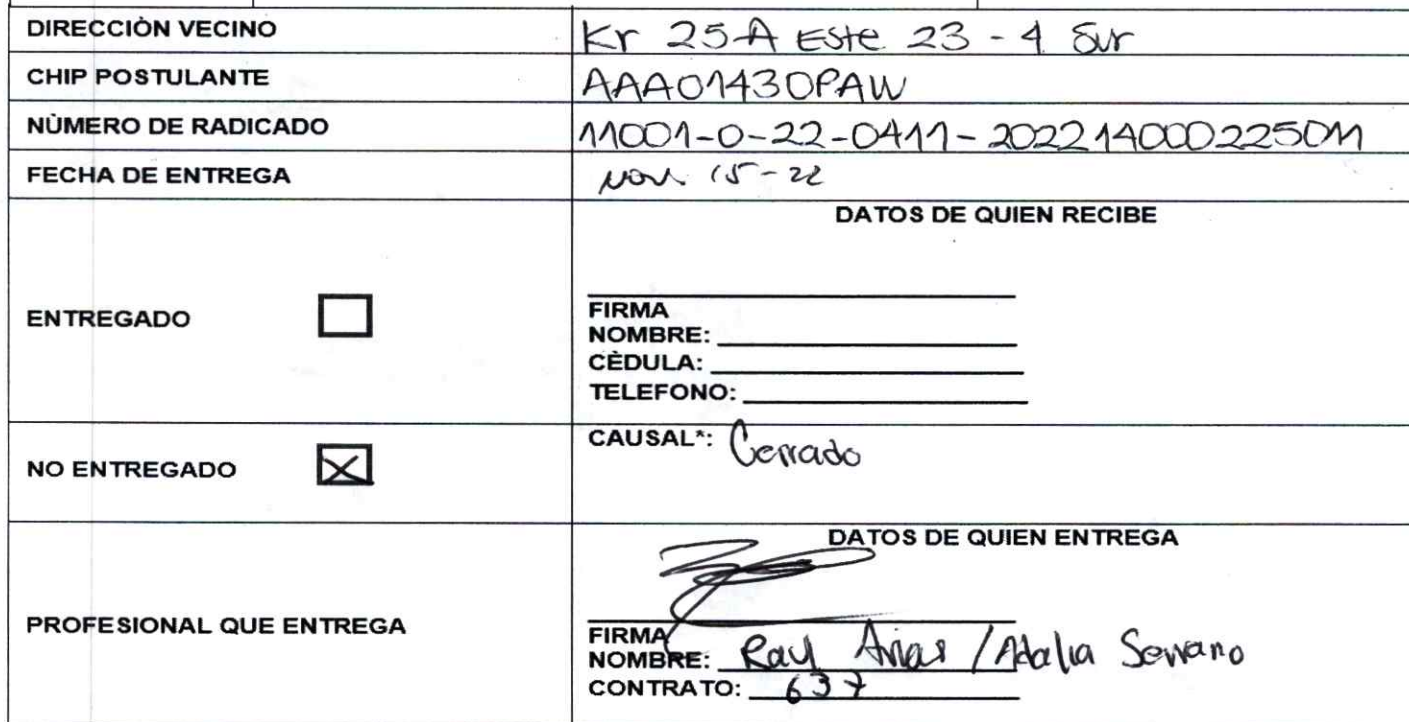 DIRECCIÒN VECINO Kr 25A Este 23 - 4 Sur
CHIP POSTULANTE AAA0143OPAW
NÙMERO DE RADICADO 11001-0-22-0411-20221400022501
FECHA DE ENTREGA nov. 15-22
DATOS DE QUIEN RECIBE
ENTREGADO
FIRMA
NOMBRE:
CÈDULA:
TELEFONO:
NO ENTREGADO X
CAUSAL*: Cerrado
DATOS DE QUIEN ENTREGA
PROFESIONAL QUE ENTREGA
FIRMA
NOMBRE: Raul Arias / Adalia Serrano
CONTRATO: 637